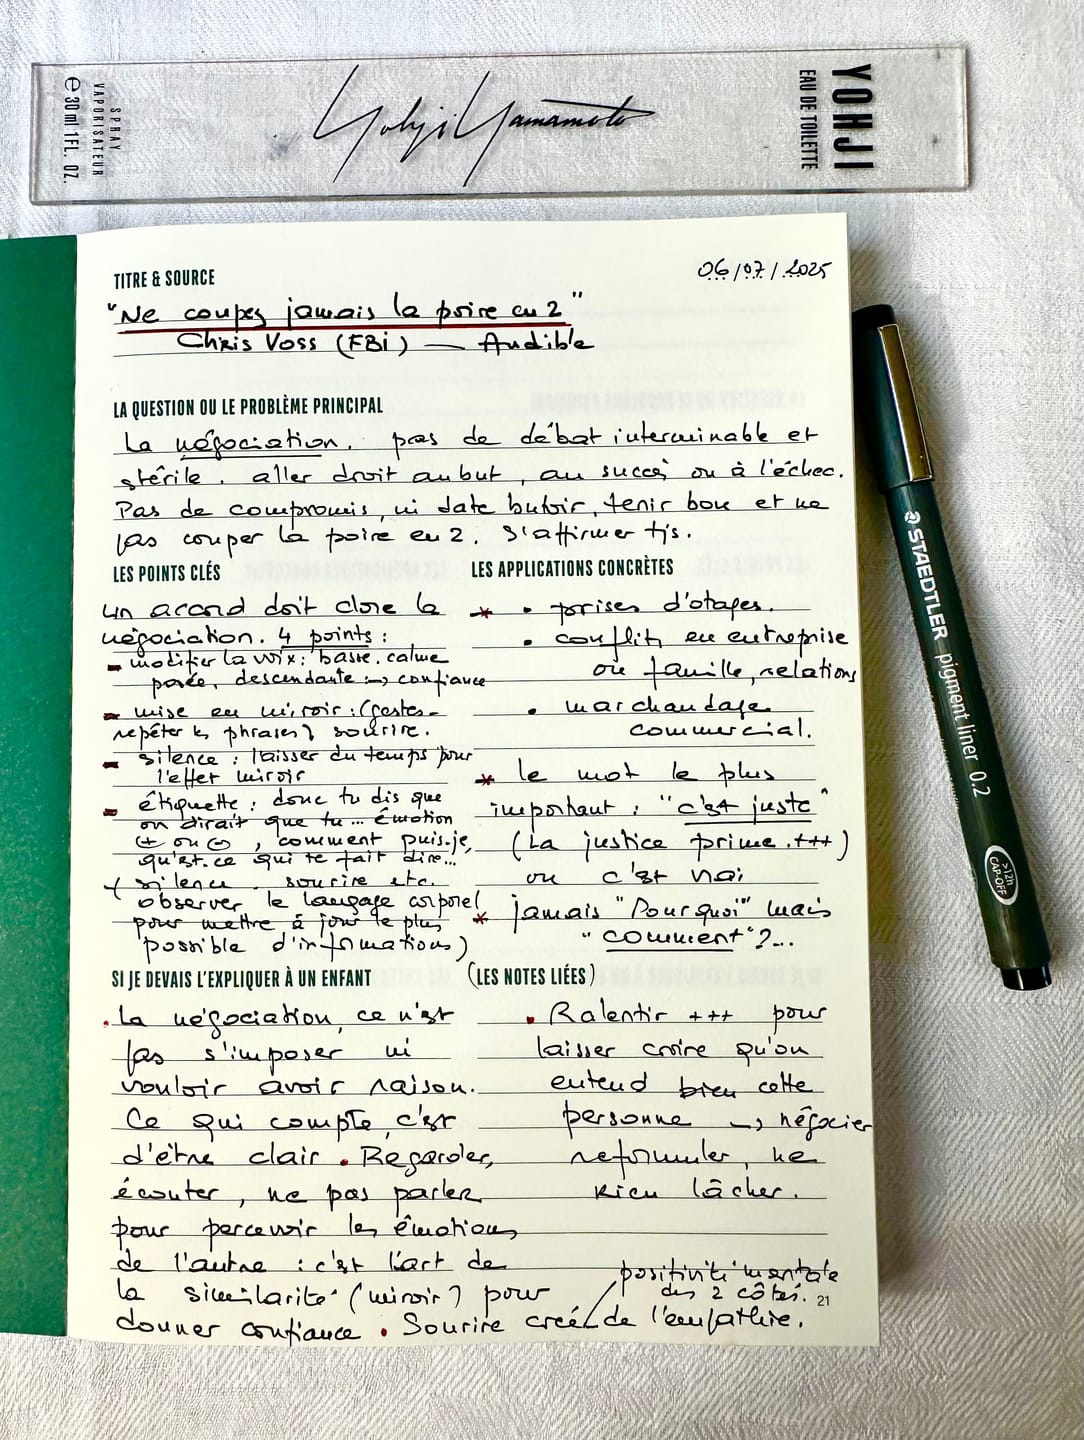 YOHJI
EAU DE TOILETTE
Yohji Yamamoto
SPRAY
VAPORISATEUR
℮ 30 ml 1FL. OZ.
TITRE & SOURCE
06/07/2025
"Ne coupez jamais la poire en 2"
Chris Voss (FBi) — Audible
LA QUESTION OU LE PROBLÈME PRINCIPAL
La négociation. pas de débat interminable et
stérile. aller droit au but, au succès ou à l'échec.
Pas de compromis, ni date butoir, tenir bon et ne
pas couper la poire en 2. S'affirmer tjs.
LES POINTS CLÉS
un accord doit clore la
négociation. 4 points :
- modifier la voix : basse. calme
posée, descendante :→ confiance
- mise en miroir : (gestes-
repéter les phrases) sourire.
- silence : laisser du temps pour
l'effet miroir
- étiquette : donc tu dis que
on dirait que tu... émotion
⊕ ou ⊖, comment puis-je,
qu'est.ce qui te fait dire...
+ silence. sourire etc.
observer le langage corporel
pour mettre à jour le plus
possible d'informations)
LES APPLICATIONS CONCRÈTES
* • prises d'otages.
• conflits en entreprise
ou famille, relations
• marchandage
commercial.
* le mot le plus
important : "c'est juste"
(La justice prime.+++)
ou c'est vrai
* jamais "Pourquoi" mais
"comment"?...
SI JE DEVAIS L'EXPLIQUER À UN ENFANT
. La négociation, ce n'est
pas s'imposer ni
vouloir avoir raison.
Ce qui compte, c'est
d'être clair. Regarder,
écouter, ne pas parler
pour percevoir les émotions
de l'autre : c'est l'art de
la similarité (miroir) pour
donner confiance. Sourire crée de l'empathie.
positivité mentale
des 2 côtés.
(LES NOTES LIÉES)
. Ralentir +++ pour
laisser croire qu'on
entend bien cette
personne → négocier
reformuler, ne
rien lâcher.
21
STAEDTLER pigment liner 0.2
>12h
CAP-OFF